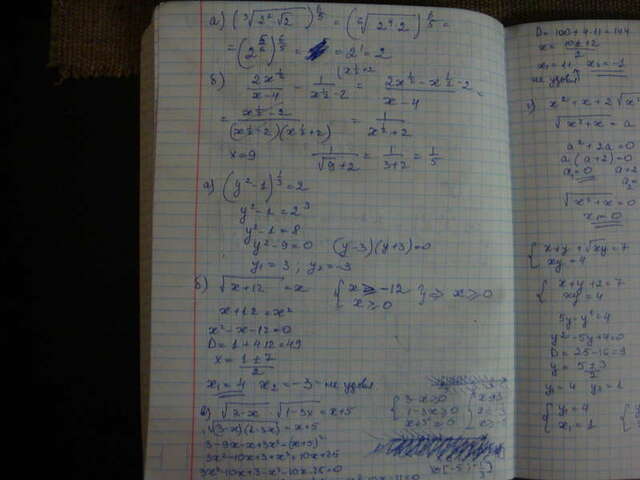 а) (∛(2²√2))^(6/5) = (⁶√(2⁴·2))^(6/5) =
= (2^(5/6))^(6/5) = = 2¹ = 2
(x^(1/2)+2
б) 2x^(1/2)/(x-4) - 1/(x^(1/2)-2) = (2x^(1/2) - x^(1/2) - 2)/(x-4) =
= (x^(1/2)-2)/((x^(1/2)-2)(x^(1/2)+2)) = 1/(x^(1/2)+2)
x=9 1/(√9+2) = 1/(3+2) = 1/5
а) (y²-1)^(1/3) = 2
y²-1 = 2³
y²-1 = 8
y²-9=0 (y-3)(y+3)=0
y₁ = 3 ; y₂ = -3
б) √(x+12) = x { x ≥ -12 x ≥ 0 } ⇒ x ≥ 0
x+12 = x²
x²-x-12=0
D = 1+4·12 = 49
x = (1±7)/2
x₁ = 4 x₂ = -3 - не удовл
√(3-x) · √(1-3x) = x+5 { 3-x ≥ 0
√((3-x)(1-3x)) = x+5 1-3x ≥ 0
x+5 ≥ 0
3-9x-x+3x² = (x+5)²
3x²-10x+3 = x²+10x+25
3x²-10x+3-x²-10x-25=0
D = 100+4·11=144
x = (10±12)/2
x₁ = 11 x₂ = -1
не удовл
x²+x+2√x²
√(x²+x) = a
a²+2a=0
a(a+2)=0
a₁=0
√(x²+x) = 0
x=0
{ x+y+√xy=7
xy=4
{ x+y+2=7
xy=4
5y-y²=4
y²-5y+4=0
D = 25-16=9
y = (5±3)/2
y₁ = 4 y₂ = 1
{ y₁=4
x₁=1